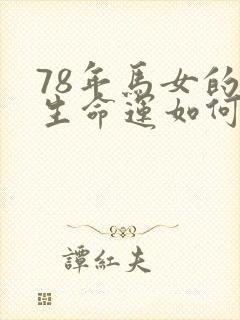 78年馬女的
生命運如何
譚紅夫